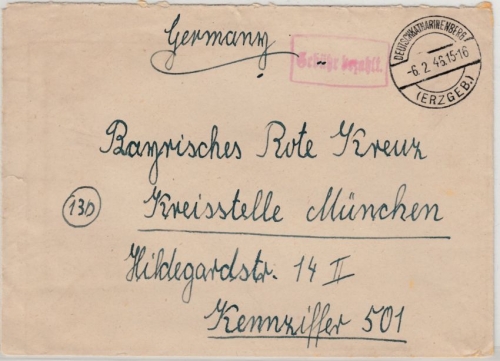 Germany
Gebühr bezahlt.
DEUTSCHKATHARINENBERG /
-6.2.46.15-16
(ERZGEB.)
Bayrisches Rote Kreuz
(13b)
Kreisstelle München
Hildegardstr. 14 II
Kennziffer 501